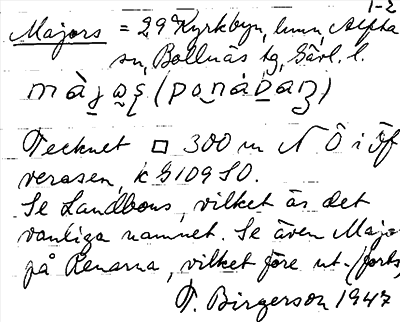 1-2
Majors = 29 Kyrkbyn, hmn Alfta
sn, Bollnäs tg, Gävl. l.
Tecknet □ 300 m N Ö i Öf
verasen, k G 109 SO.
Se Landbons, vilket är det
vanliga namnet. Se även Majo
på Renarna, vilket före ut. (forts)
T. Birgerson 1947